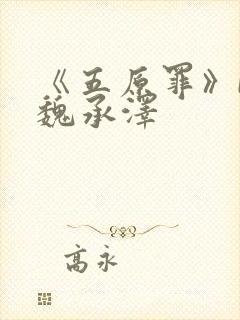 《五原罪》
魏承泽
高永